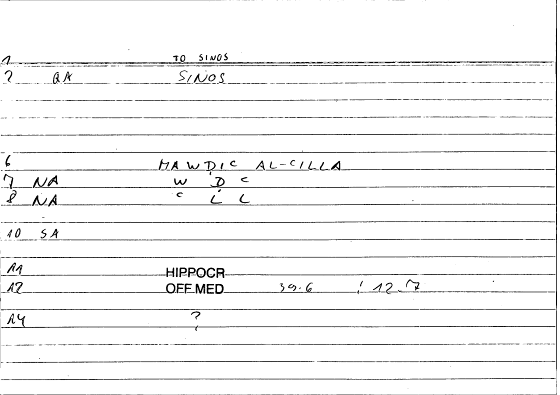 1 TO SINOS
2 QA SINOS
6 MAWDIC AL-CILLA
7 NA W D C
8 NA C L L
10 SA
A1 HIPPOCR
A2 OFF.MED 39.6 : 12.7
A4 ?